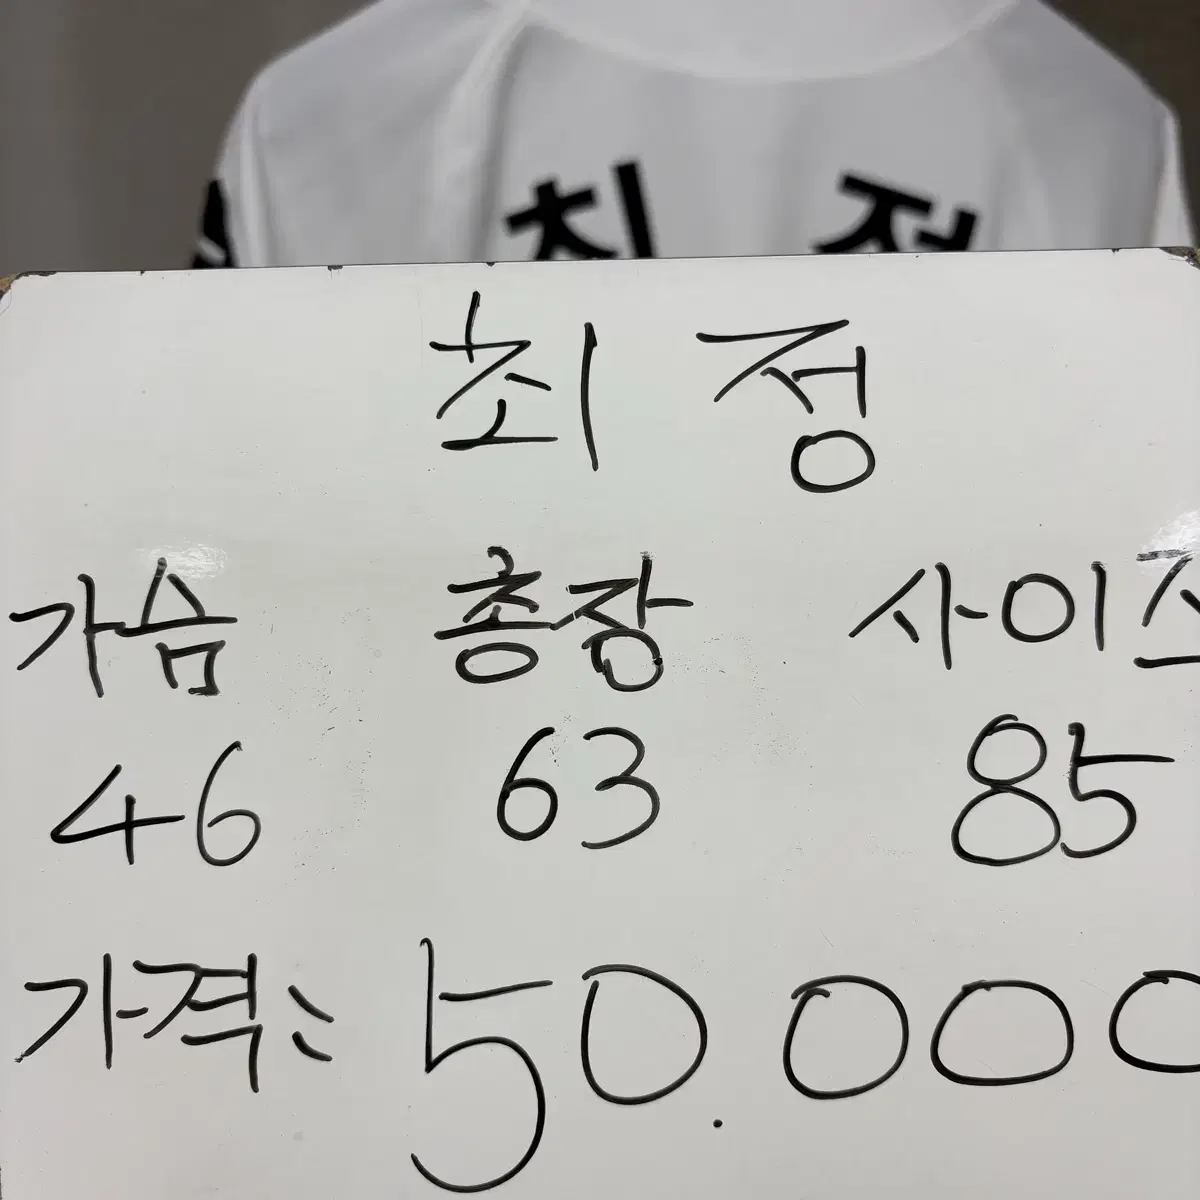 최 정
최 정
가슴 총장 사이즈
46 63 85
가격: 50.000